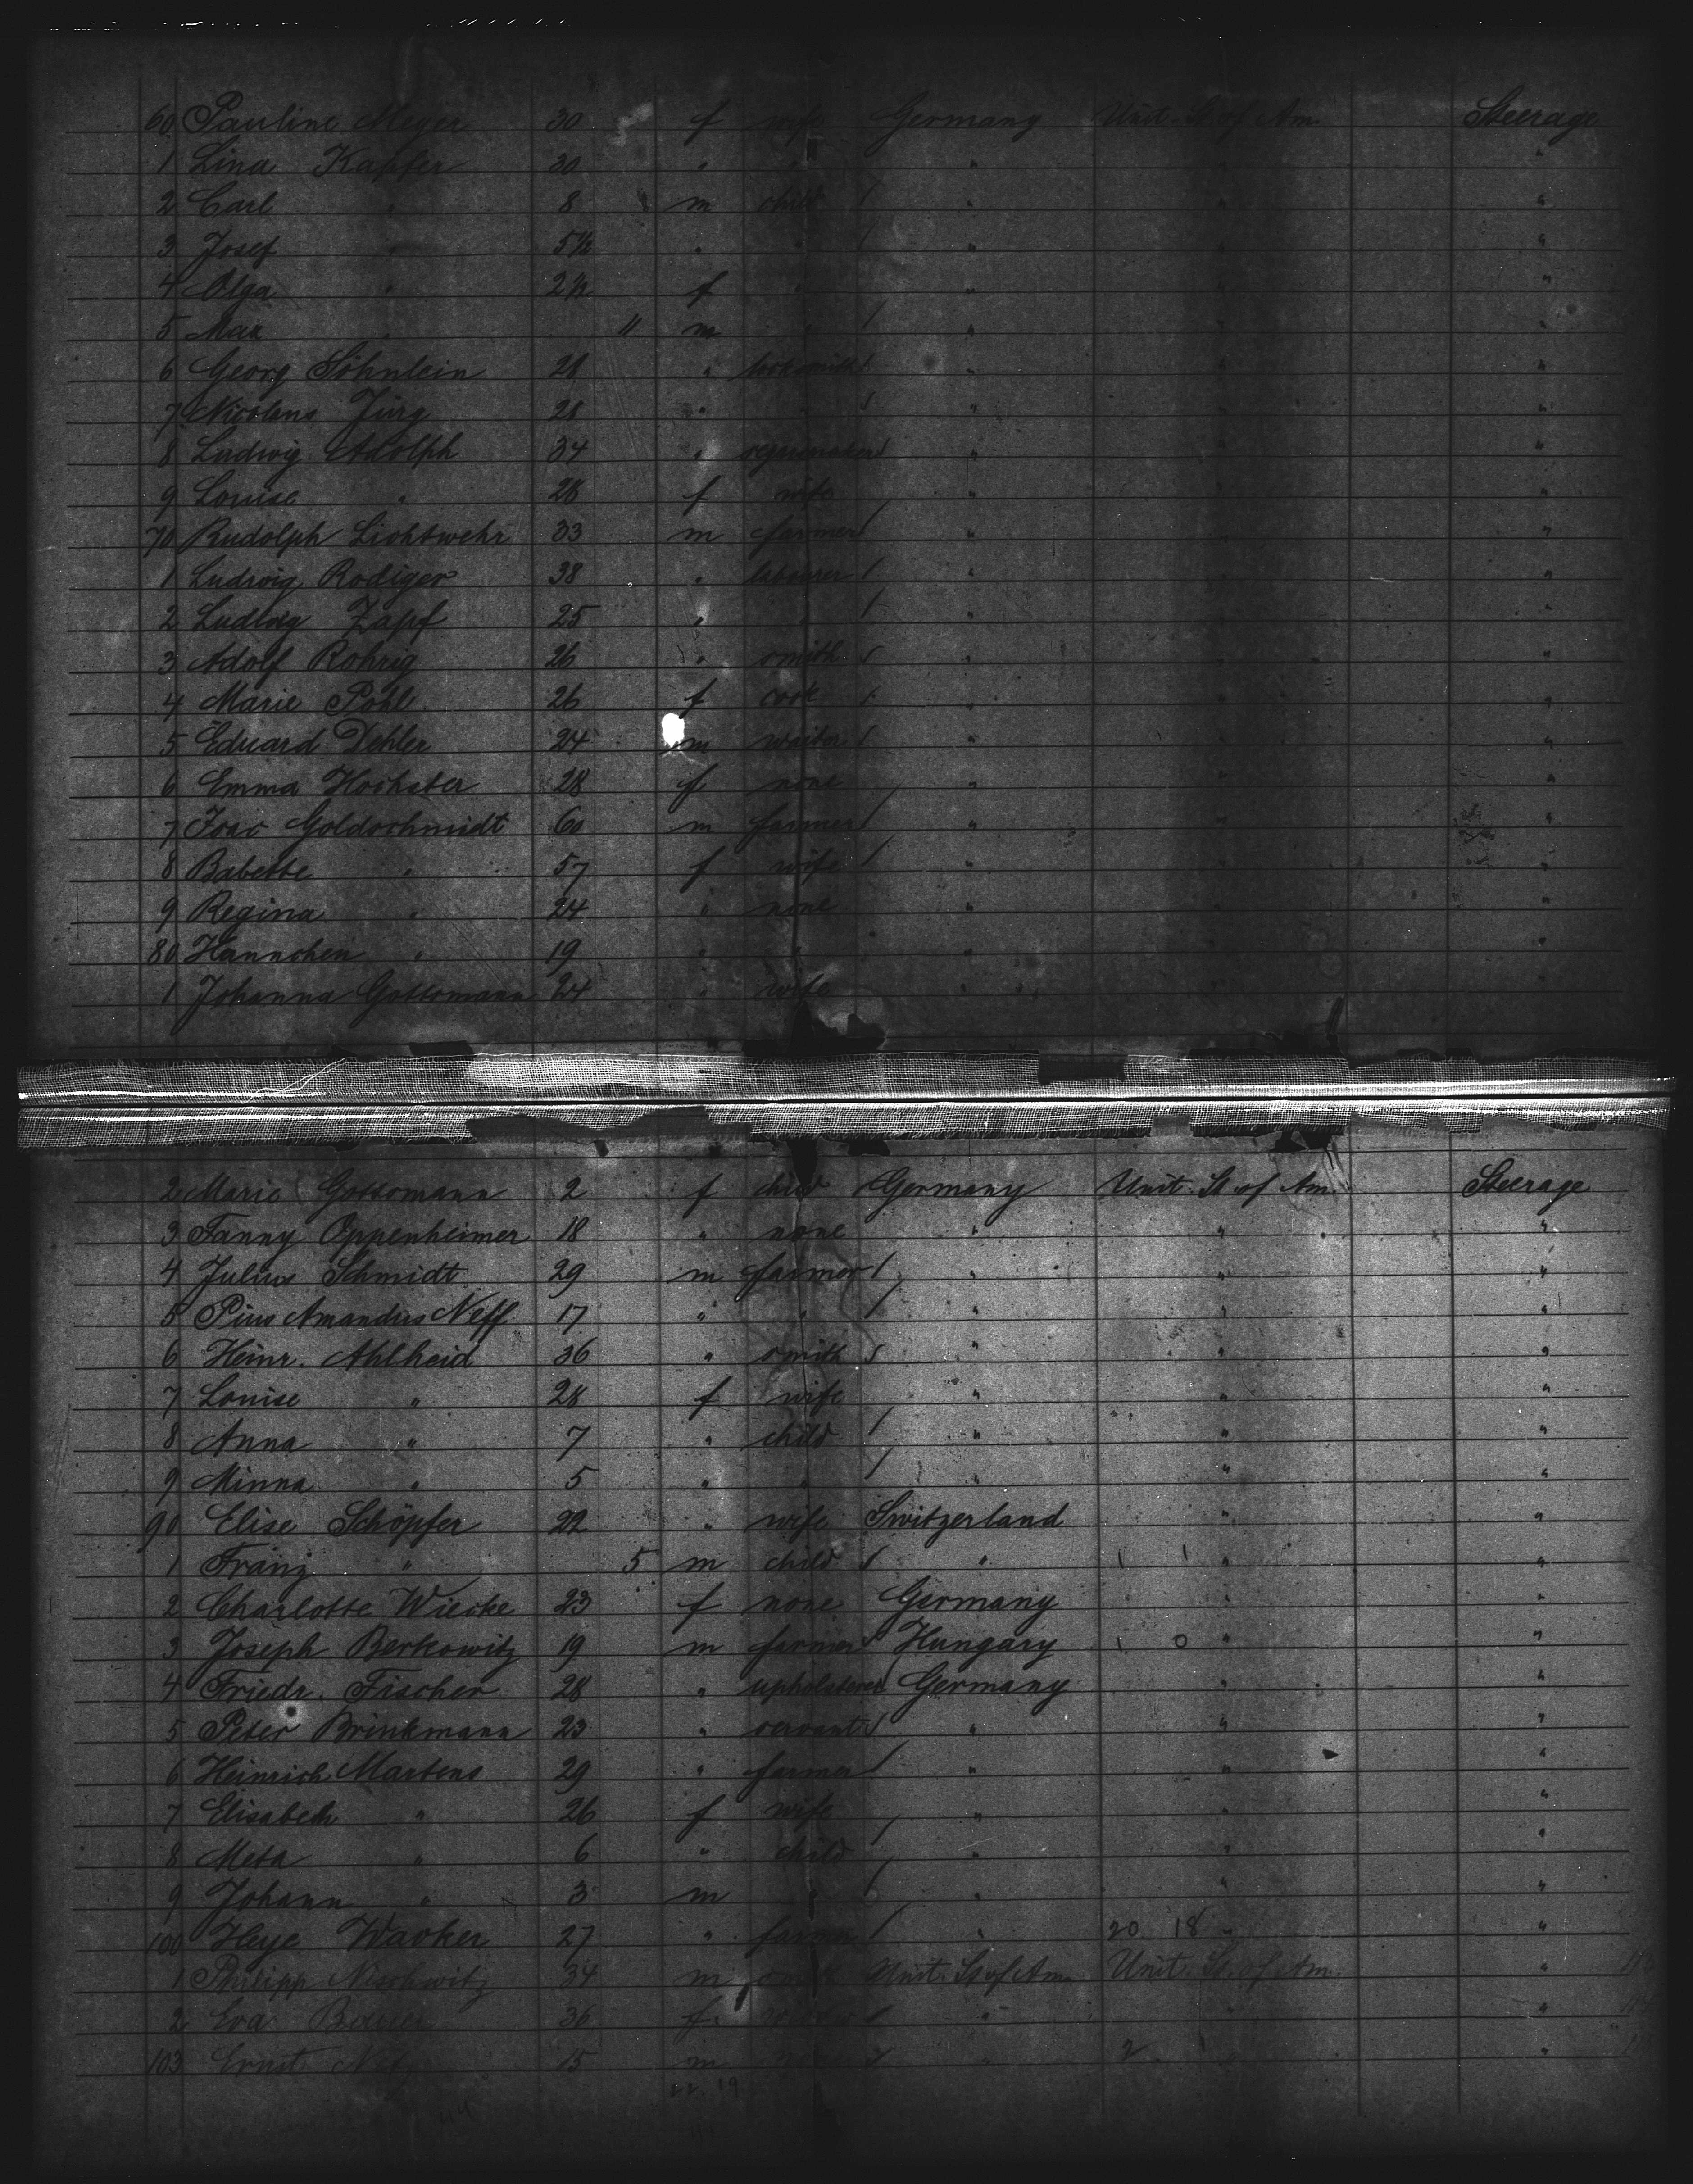 60 Pauline Meyer 30 f wife Germany Unit. St. of Am. Steerage
1 Lina Kapfer 30 " " " " "
2 Carl " 8 m child / " " "
3 Josef " 5½ " " / " " "
4 Olga " 2½ f " " " "
5 Max " 11 m " / " " "
6 Georg Söhnlein 21 " / " " "
7 Nicolaus Jürg 21 " " / " " "
8 Ludwig Adolph 34 " segarmaker / " " "
9 Louise " 28 f wife " " "
70 Rudolph Lichtwehr 33 m farmer / " " "
1 Ludwig Rodiger 38 " labourer / " " "
2 Ludwig Zapf 25 " " / " " "
3 Adolf Rohrig 26 " smith / " " "
4 Marie Pohl 26 f cook / " " "
5 Eduard Dehler 24 m waiter / " " "
6 Emma Hochster 28 f none " " "
7 Isac Goldschmidt 60 m farmer / " " "
8 Babette " 57 f wife / " " "
9 Regina " 24 " none " " "
80 Hannchen " 19 " " " " "
1 Johanna Gottsmann 24 " wife " " "
2 Marie Gottsmann 2 f child / Germany Unit. St. of Am. Steerage
3 Fanny Oppenheimer 18 " none " " "
4 Julius Schmidt 29 m farmer / " " "
5 Pius Amandus Neff 17 " " / " " "
6 Heinr. Ahlheid 36 " smith / " " "
7 Louise " 28 f wife " " "
8 Anna " 7 " child / " " "
9 Minna " 5 " " / " " "
90 Elise Schöpfer 22 " wife Switzerland " "
1 Franz " 5 m child / " 1 1 " "
2 Charlotte Wiecke 23 f none Germany " "
3 Joseph Berkowitz 19 m farmer / Hungary 1 0 " "
4 Friedr. Fischer 28 " upholsterer Germany " "
5 Peter Brinkmann 23 " servant / " " "
6 Heinrich Martens 29 " farmer / " " "
7 Elisabeth " 26 f wife " " "
8 Meta " 6 " child / " " "
9 Johann " 3 m " / " " "
100 Heye Wacker 27 " farmer / " 20 18 " "
1 Philipp Nischwitz 34 m smith Unit. St. of Am. Unit. St. of Am. "
2 Eva Bauer 36 f / " " "
103 Ernst 15 m / " 2 " "
22. 19